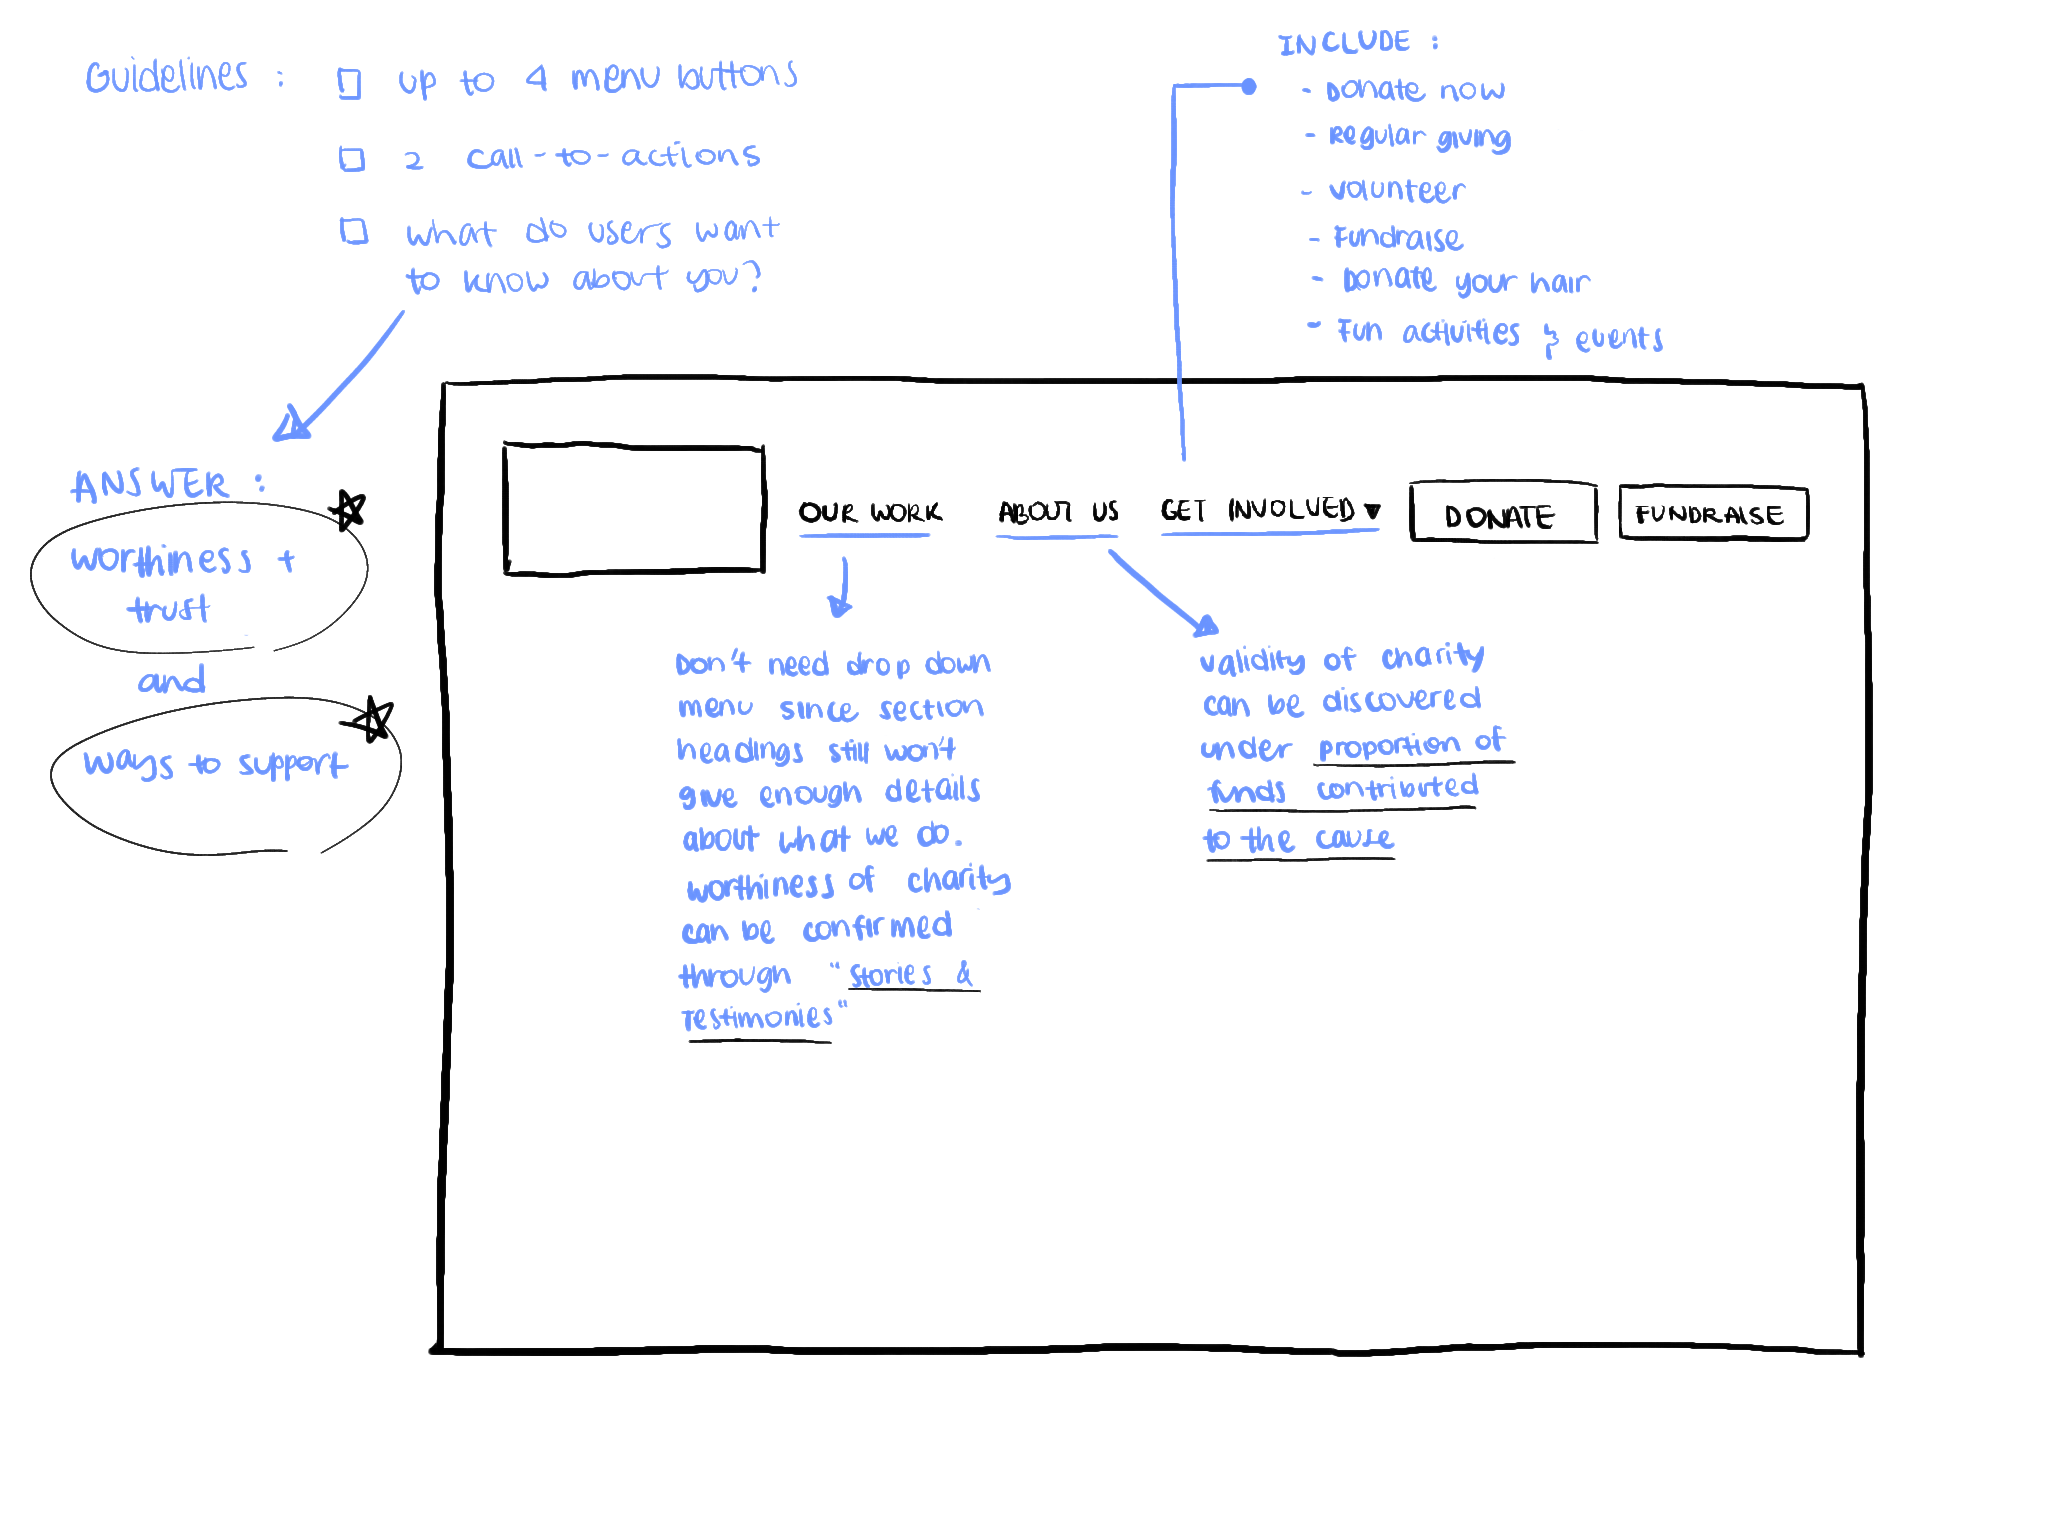 Guidelines :
up to 4 menu buttons
2 call-to-actions
what do users want
to know about you?
INCLUDE :
- Donate now
- Regular giving
- volunteer
- Fundraise
- Donate your hair
- Fun activities & events
ANSWER :
worthiness +
trust
and
ways to support
OUR WORK ABOUT US GET INVOLVED ▼ DONATE FUNDRAISE
Don't need drop down
menu since section
headings still won't
give enough details
about what we do.
worthiness of charity
can be confirmed
through "Stories &
Testimonies"
validity of charity
can be discovered
under proportion of
funds contributed
to the cause